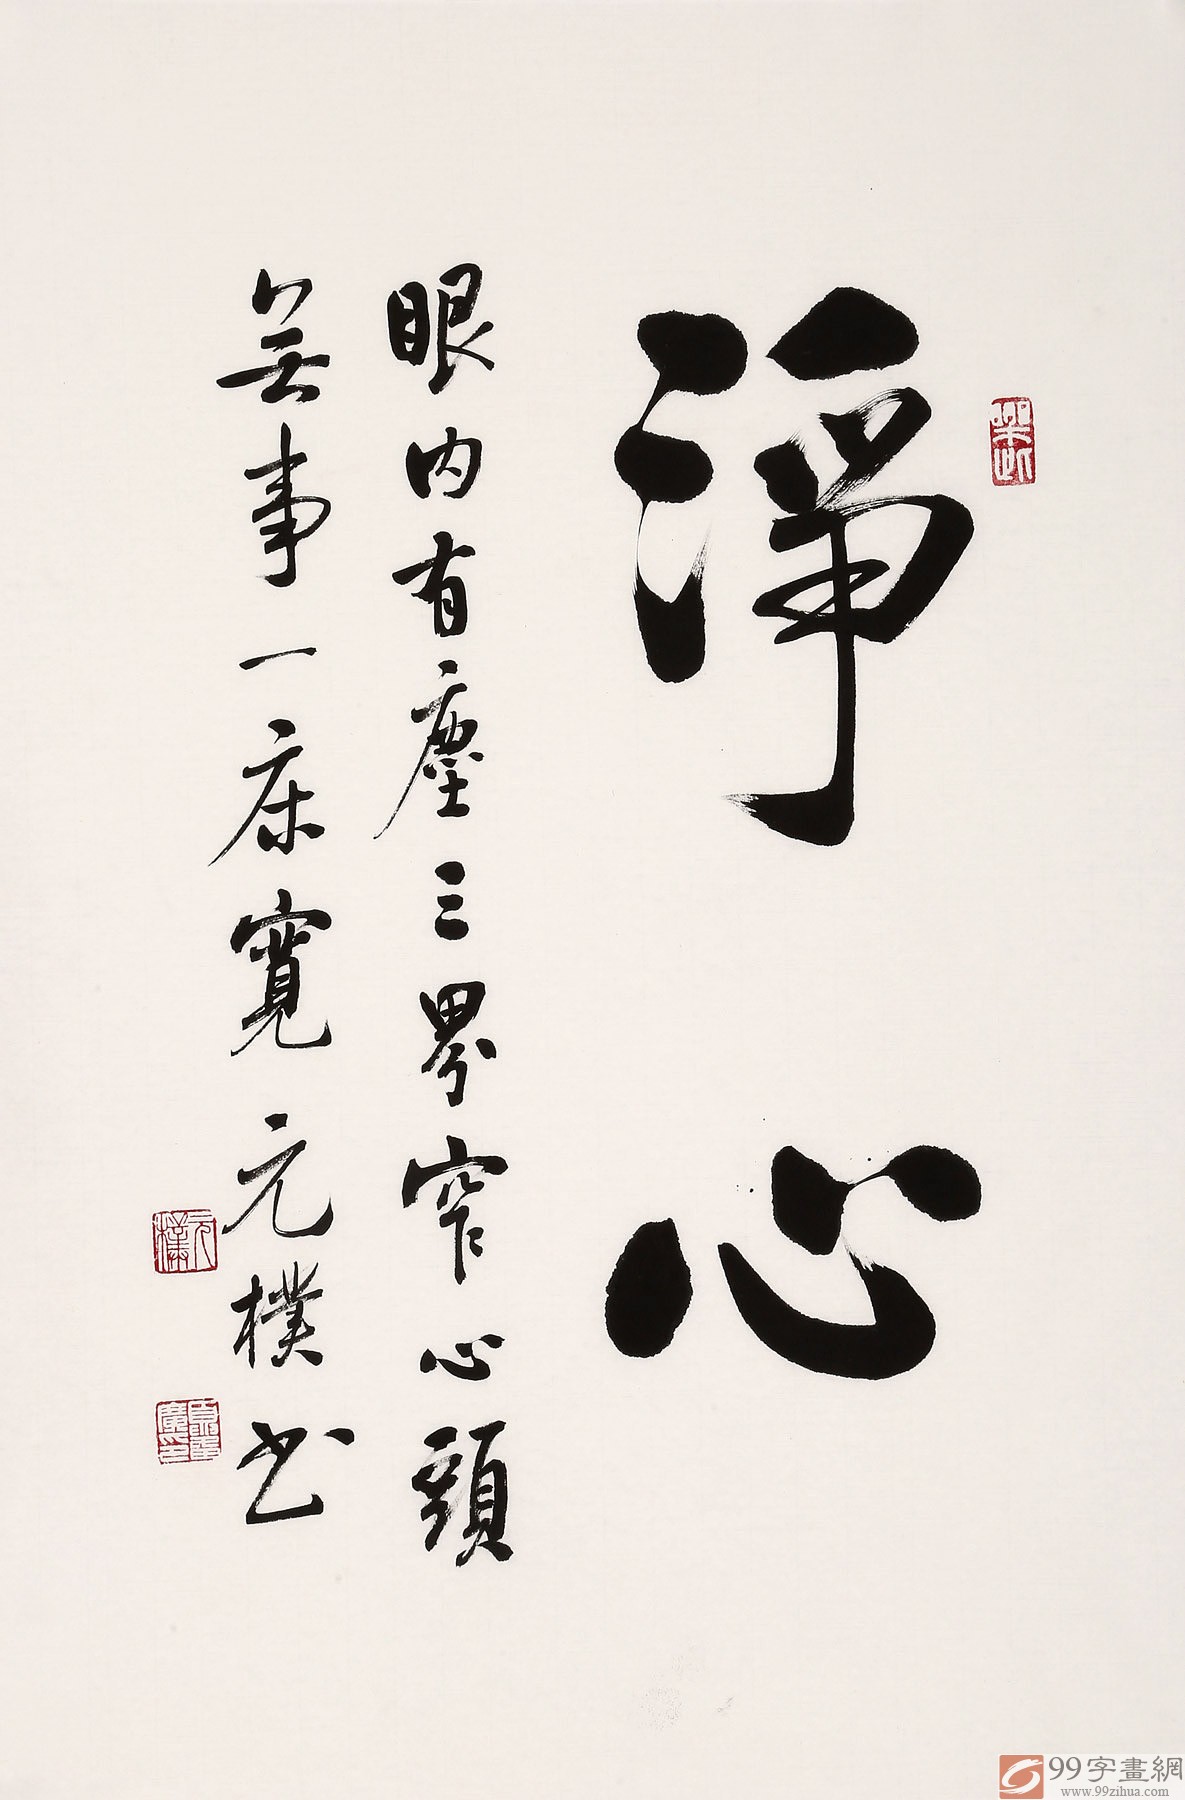 淨心
眼内有塵三界窄心頭
無事一床寬元樸书
元樸
99字畫網
www.99zihua.com